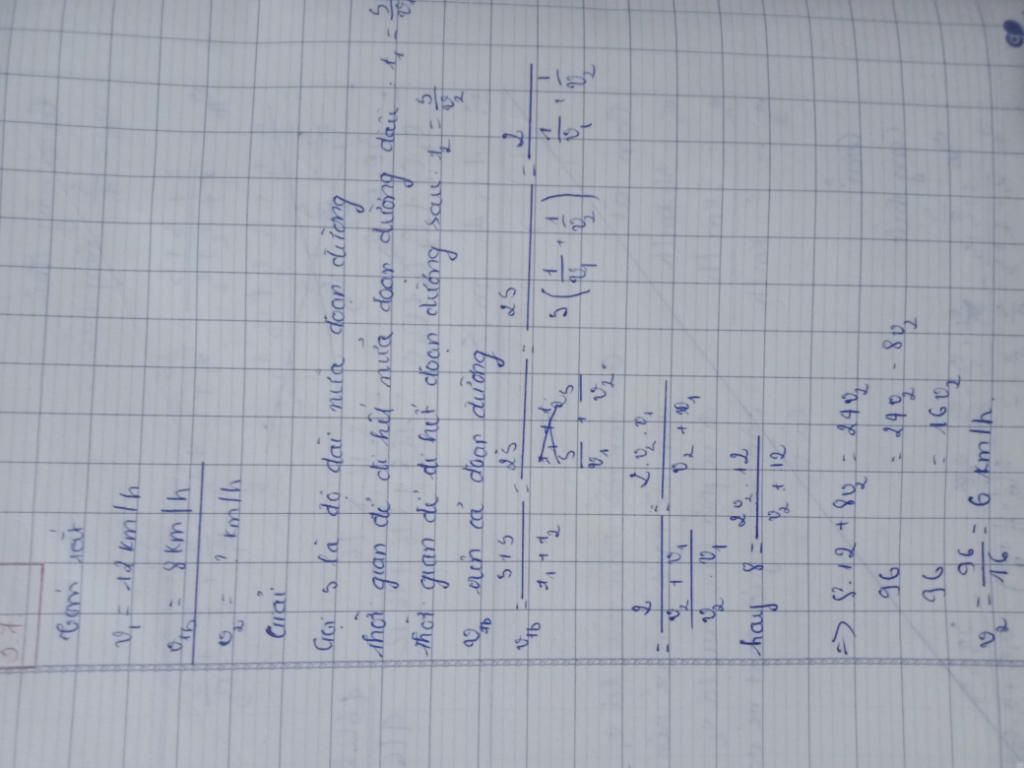 Tóm tắt
v₁ = 12 km/h
v_tb = 8 km/h
v₂ = ? km/h
Giải
Gọi s là độ dài nửa đoạn đường
thời gian để đi hết nửa đoạn đường đầu. t₁ = s/v₁
thời gian để đi hết đoạn đường sau. t₂ = s/v₂
v_tb trên cả đoạn đường
v_tb = (s+s)/(t₁+t₂) = 2s/(s/v₁ + s/v₂) = 2s/(s(1/v₁ + 1/v₂)) = 2/(1/v₁ + 1/v₂)
= 2/((v₂ + v₁)/(v₂ . v₁)) = (2.v₂.v₁)/(v₂ + v₁)
hay 8 = (2v₂ . 12)/(v₂ + 12)
=> 8.12 + 8v₂ = 24v₂
96 = 24v₂ - 8v₂
96 = 16v₂
v₂ = 96/16 = 6 km/h.